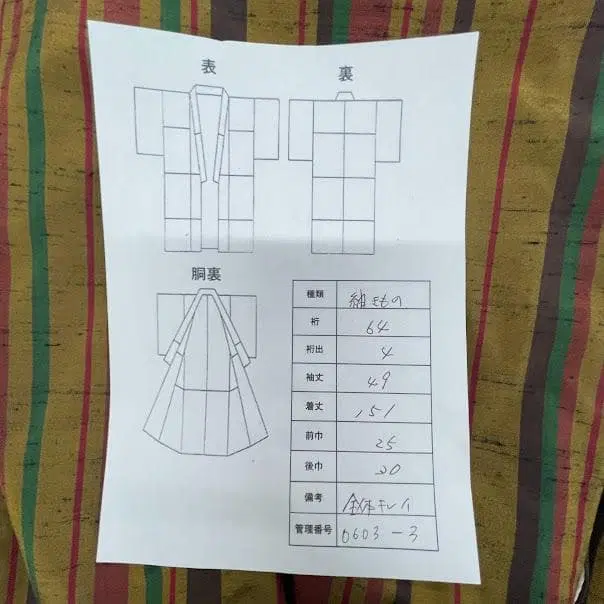 表
裏
胴裏
種類 紬きもの
裄 64
裄出 4
袖丈 49
着丈 151
前巾 25
後巾 30
備考 全体キレイ
管理番号 0603-3